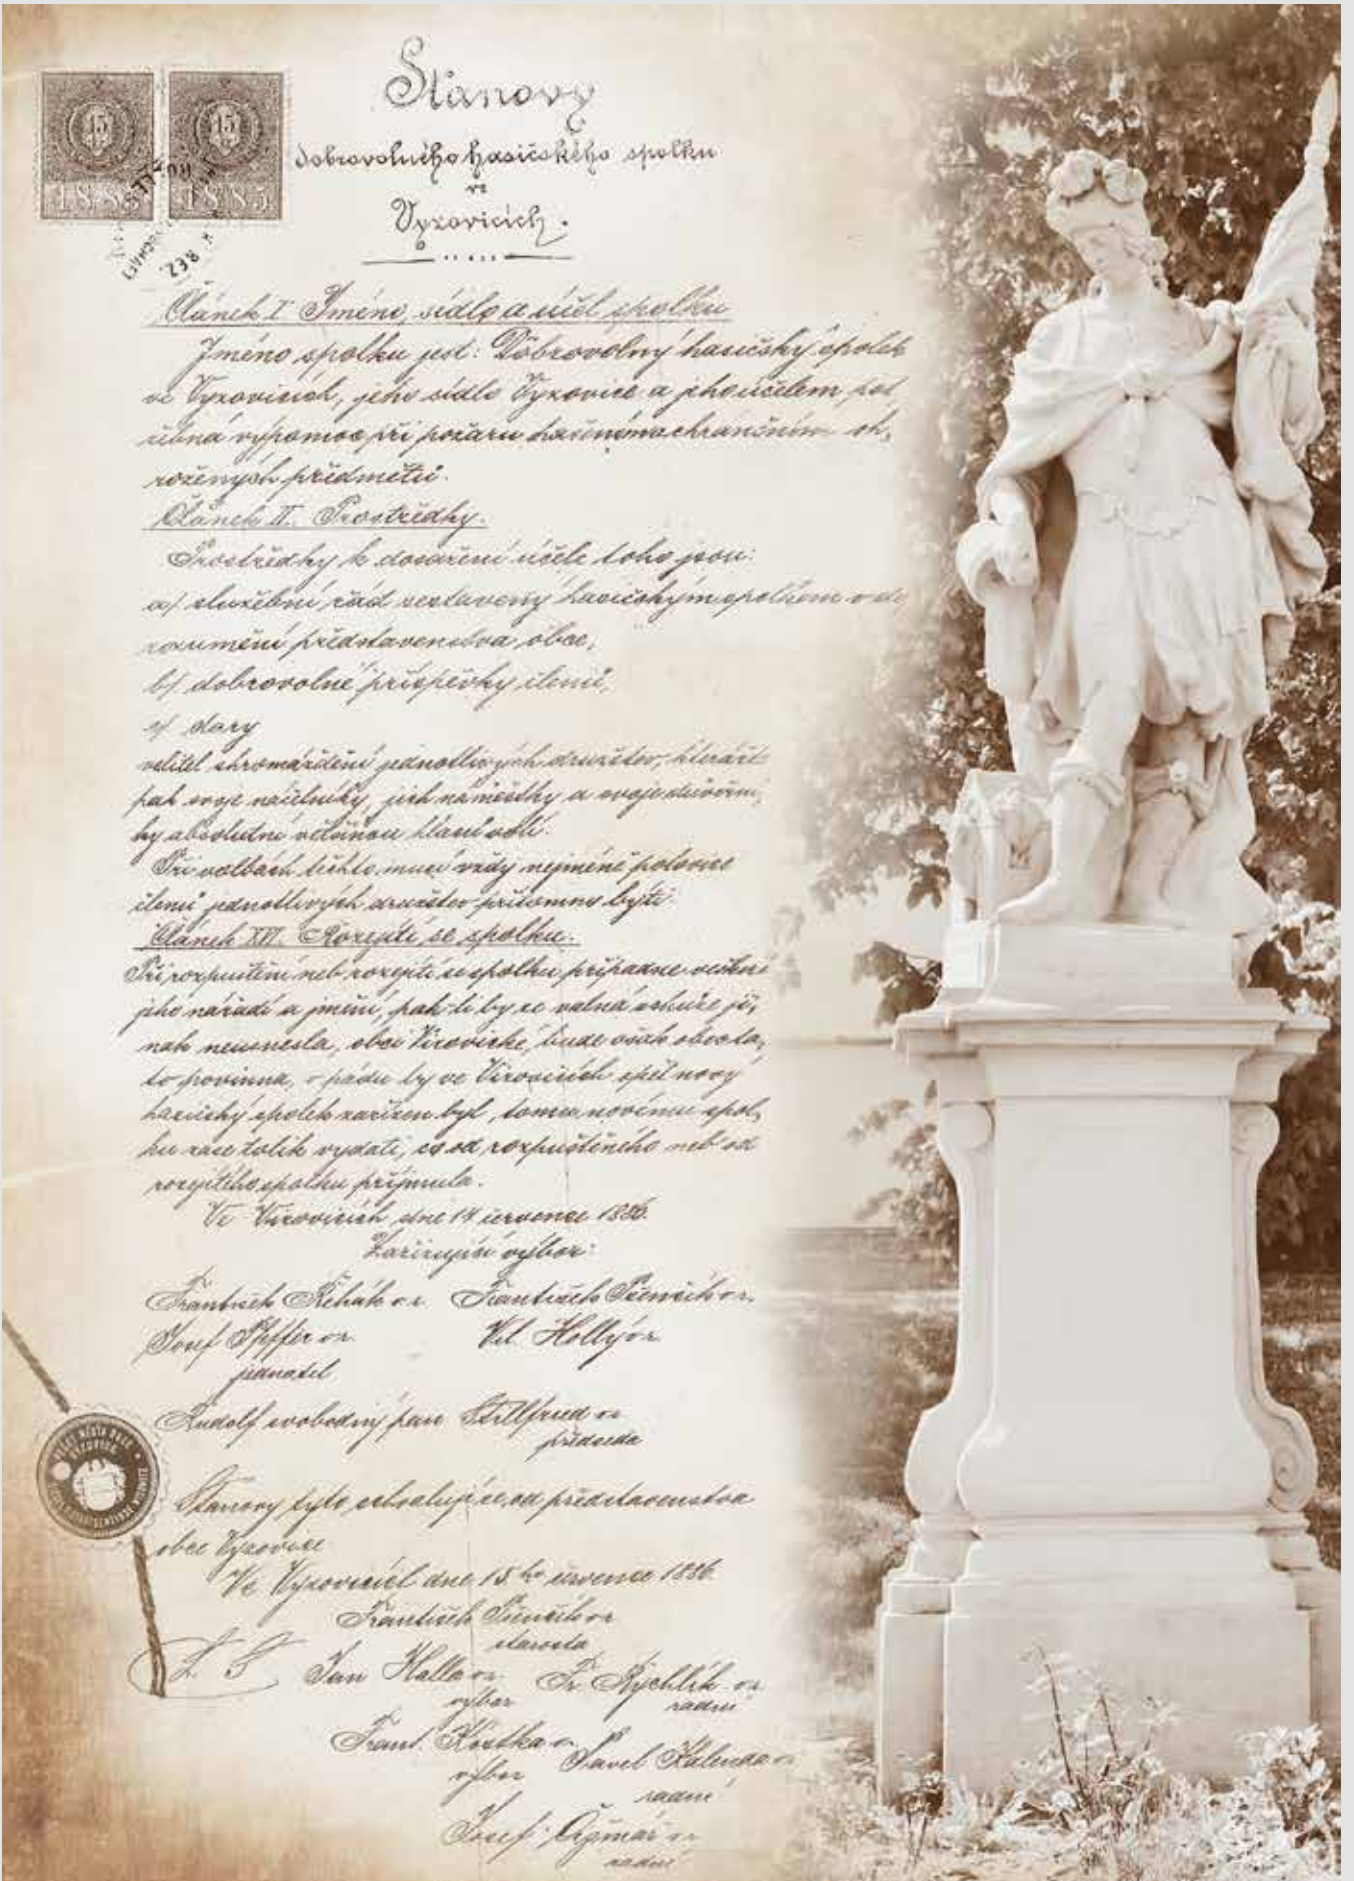 15
15
1885
1885
Stanovy
dobrovolného hasičského spolku
ve
Vyzovicích.
Článek I. Jméno, sídlo a účel spolku
Jméno spolku jest: Dobrovolný hasičský spolek
ve Vyzovicích, jeho sídlo Vyzovice a jeho účelem, pot
řebná výpomoc při požaru hašením a chráněním oh,
rožených předmětů.
Článek II. Prostředky.
Prostředky k dosažení účele toho jsou:
a/ služební řád sestavený hasičským spolkem v do
rozumění představenstva obce,
b/ dobrovolné příspěvky členů,
c/ dary
velitel shromáždění jednotlivých družstev, kteráž
pak svoje náčelníky, jich náměstky a svoje důvěrní,
ky absolutní většinou hlasů volí.
Při volbách těchto musí vždy nejméně polovice
členů jednotlivých družstev přítomno býti.
Článek XVI. Rozejití se spolku.
Při rozpuštění neb rozejití se spolku připadne veškeré
jeho nářadí a jmění, pak-li by se valná schůze ji,
nak neusnesla, obci Vizovické, bude však obec ta,
to povinna, v pádu by ve Vizovicích opět nový
hasičský spolek zařízen byl, tomu novému spol,
ku zase tolik vydati, co od rozpuštěného neb od
rozejitého spolku přijmula.
Ve Vizovicích, dne 14 července 1886.
Zařizující výbor:
František Řihák v.r. František Pšenčík v.r.
Josef Pfeffer v.r. Vil. Hollý v.r.
jednatel
Rudolf svobodný pan Stillfried v.r.
předseda
Stanovy tyto schvalují se od představenstva
obce Vyzovice
Ve Vyzovicích dne 15ho července 1886.
František Pšenčík v.r.
starosta
L. S. Jan Halla v.r. Fr. Rychlík v.r.
výbor radní
Frant. Kostka v.r. Pavel Kalenda v.r.
výbor radní
Josef Čižmář v.r.
radní